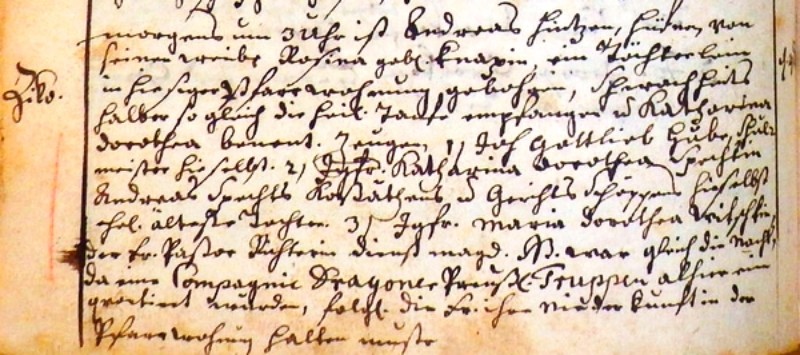 morgens um 3 Uhr ist Andreas Hintzen, von
seinem weibe Rosina geb. Knapin, ein Töchterlein
in hiesiger Pfarrwohnung gebohren, Schwachheits
Zeko.
halber so gleich die heil. Tauffe empfangen u Katharina
dorothea benent. Zeugen, 1, Joh Gottlieb Hube, Schul
meister hieselbst. 2, Jgfr. Katharina Dorothea Spechtin
Andreas Spechts Koßäthens u Gerichts Schöppens hieselbst
ehel. älteste Tochter. 3, Jgfr. Maria Dorothea
der Fr. Pastor Richterin dienst magd. NB. war gleich die Nacht,
da eine Compagnie Dragoner Preuß. Truppen alhier ein
qvartirt wurden, folgl. die Fr. ihre Niederkunft in der
Pfarrwohnung halten muste